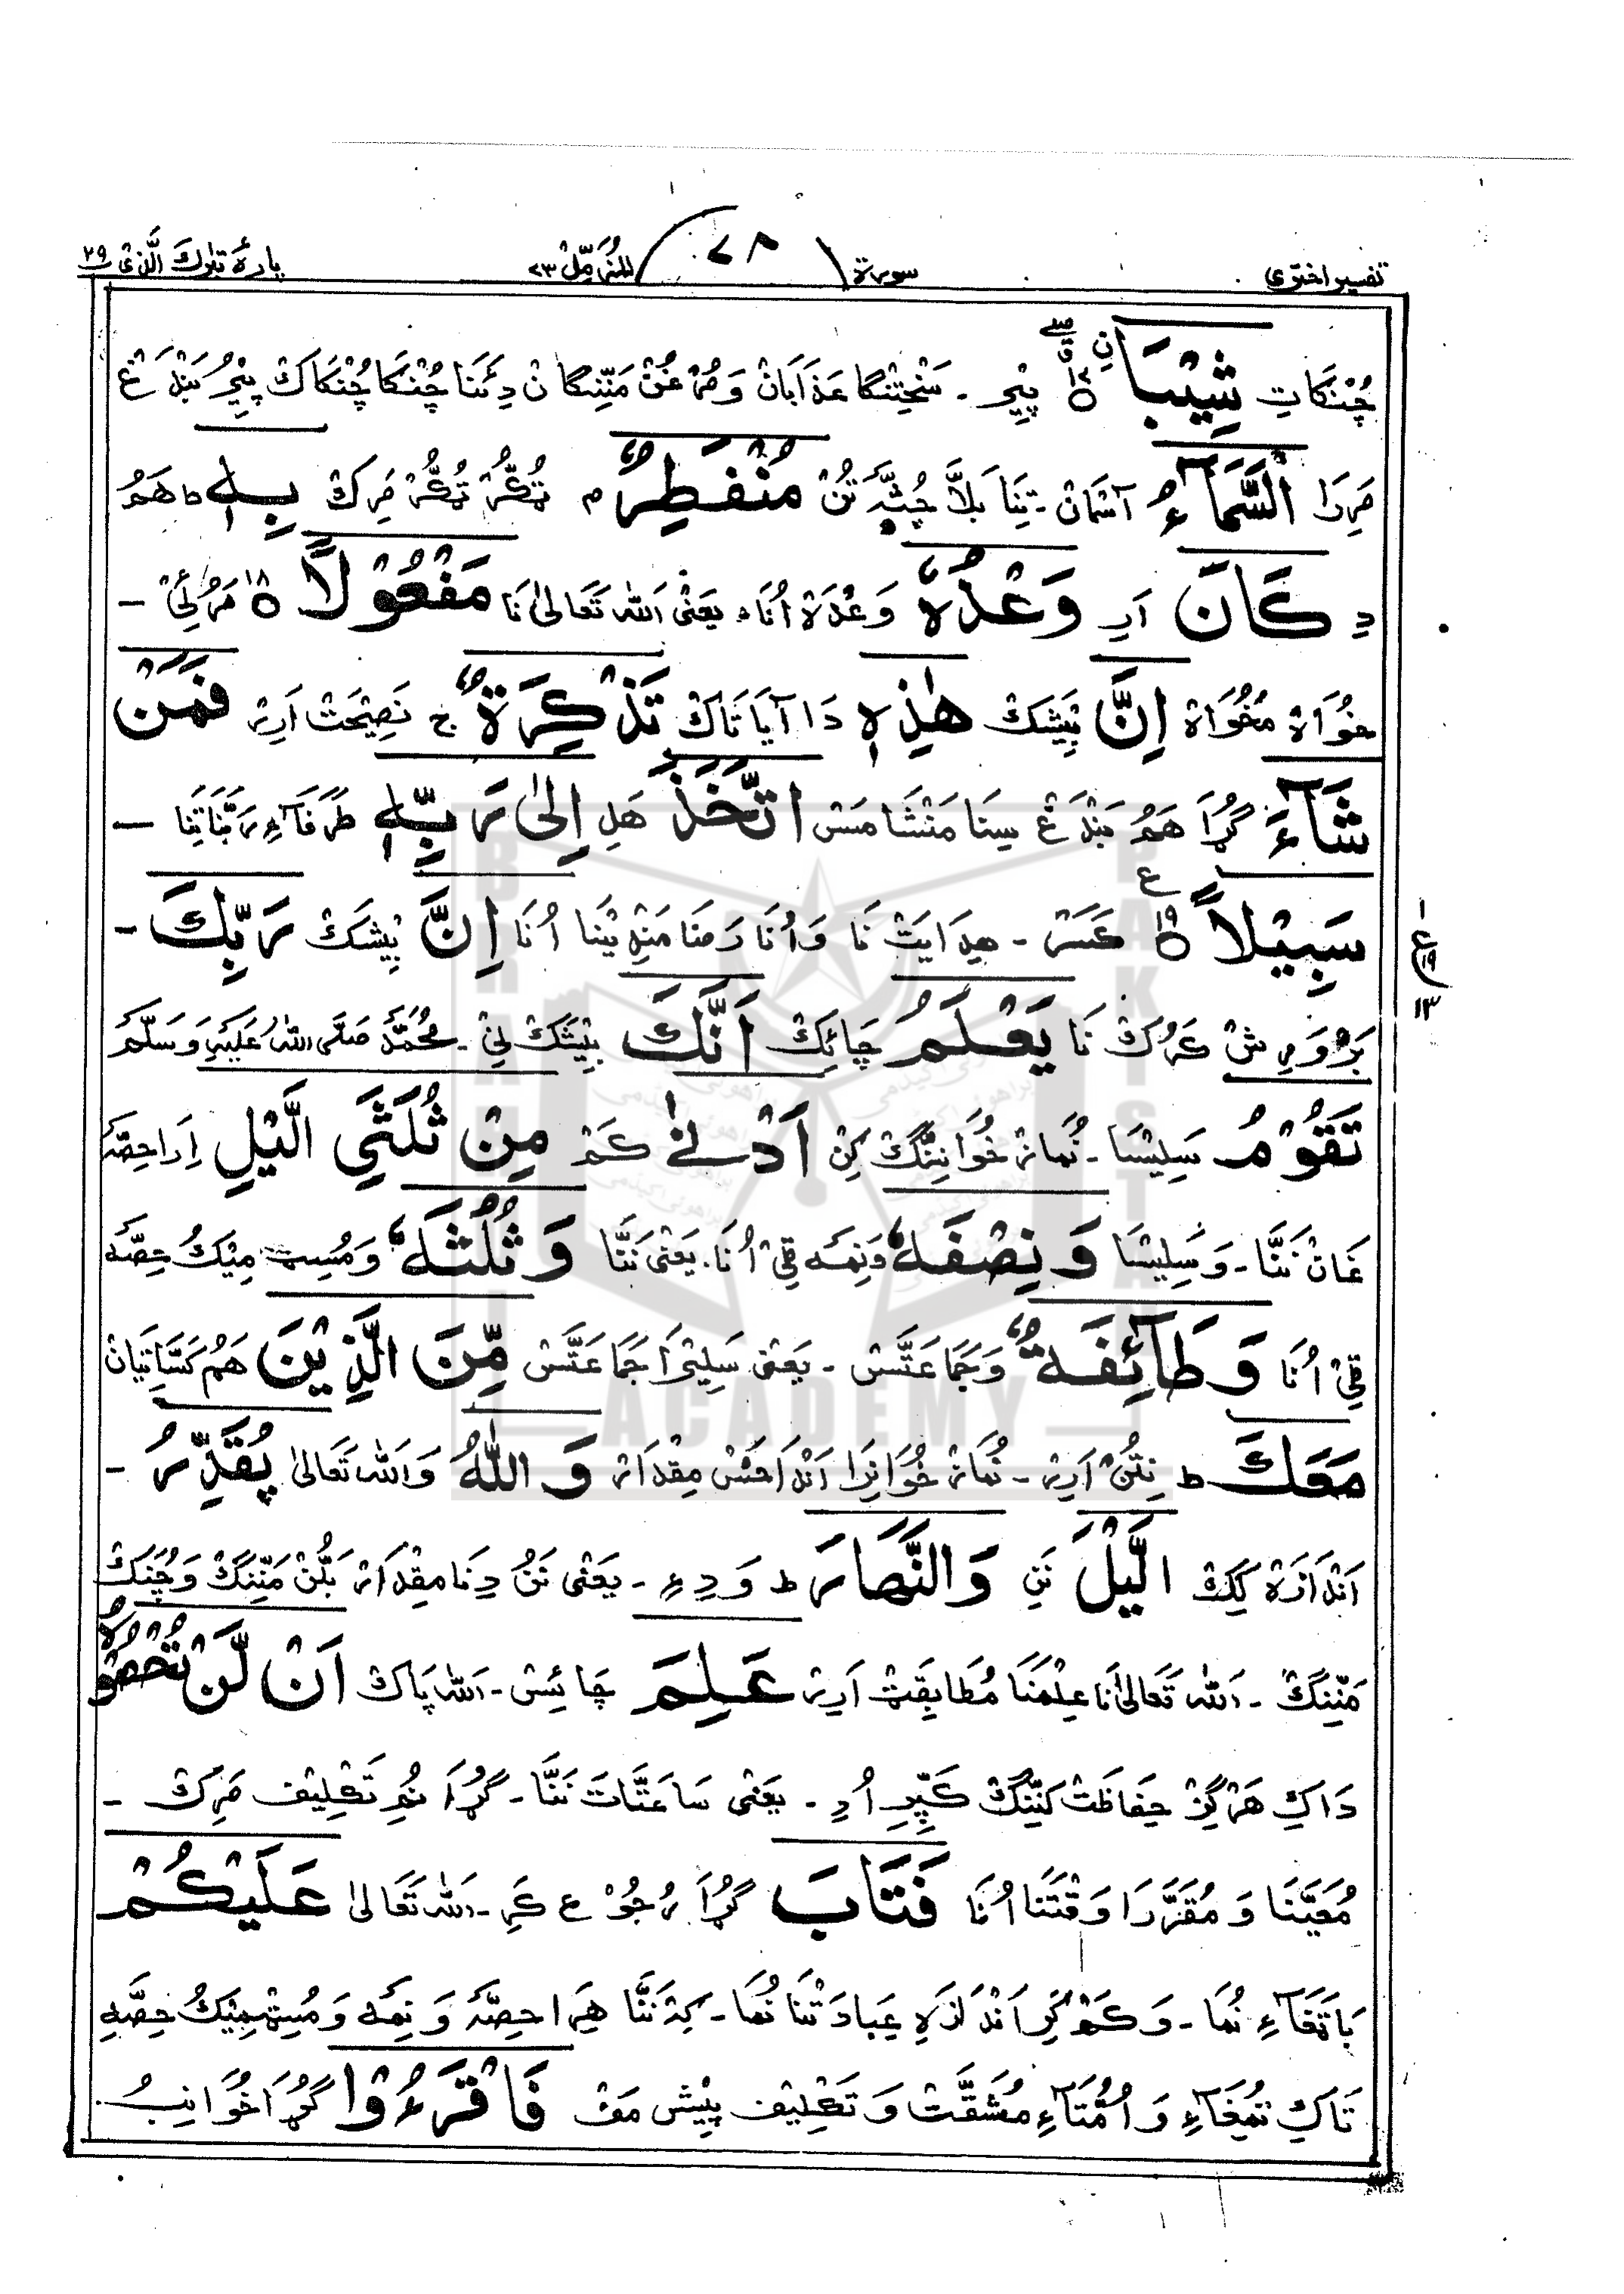 تفسیر اختری سورۃ ۷۸ المزمل ۷۳ پارۂ تبارک الذی ۲۹
چُنْکَاتِ شِیْبَاۨ ۱۷ پِیْر۔ سَخْتِنْگا عَذَابَانْ وَ مَنِّنِگا نْ دِ ئنَا چُنْکَا چُنْکَاکْ پِیْر بَنْدَغْ
مَرَرَا اَلسَّمَآءُ آسْمَانْ۔ تِنَا بَلَّا تُنْ مُنْفَطِرٌۢ م تُکَّرْ تُکَّرْ مَرِکْ بِهٖ ط هَمُ
دِ کَانَ اَرِ وَعْدُهٗ وَعْدَهْ اُنَا، یَعْنِیْ اَللّٰه تَعَالیٰ نَا مَفْعُوْلًا ۱۸ مَرُ ئِیْ -
خُوَاهْ مَخُوَاهْ اِنَّ بِیْشَکْ هٰذِهٖ دَا آیَاتَاکْ تَذْکِرَةٌ ج نَصِیْحَتْ اَرِیْر فَمَنْ
شَآءَ گُڑَا هَمُ بَنْدَغْ سِنَا مَنْشَا مَسْ اتَّخَذَ هَلِ اِلٰی رَبِّهٖ طَرَفَآءِ رَبَّنَا تِنَا -
سَبِیْلًا ۱۹ ع کَسَرْ - هِدَایَتْ نَا وَ اُنَا رَضَنَا مَنْدِیْنَا اُنَا اِنَّ بِیْشَکْ رَبَّكَ -
پَرْوَرِشْ کَرُکْ نَا یَعْلَمُ چَائِکْ اَنَّكَ بِیْشَکْ نِیْ - مُحَمَّدْ صَلَّی اللّٰهُ عَلَیْهِ وَسَلَّمْ
تَقُوْمُ سَلِیْسَا - نُمَازْ خُوَانِنْگْ کِنْ اَدْنٰی کَمْ مِنْ ثُلُثَیِ الَّیْلِ اِرَا حِصَّهْ
غَانْ نَنَّا - وَ سَلِیْسَا وَ نِصْفَهٗ وَ نِمَهْ قِیْ اُنَا. یَعْنِیْ نَنَّا وَ ثُلُثَهٗ وَ مُسِ مِیْکُ حِصَّهْ
قِیْ اُنَا وَ طَآئِفَةٌ وَ جَمَاعَتَّسْ - یَعْنِیْ سَلِیْرَا جَمَاعَتَّسْ مِّنَ الَّذِیْنَ هَمُ کَسَّاتِیَانْ
مَعَكَ ط نِتُنْ اَرِیْر - نُمَازْ خُوَانِرَا اَنْدَاخَسْ مِقْدَارْ وَ اللّٰهُ وَ اَللّٰه تَعَالیٰ یُقَدِّرُ -
اَنْدَازَهْ کِکْ الَّیْلَ نَنِ وَ النَّهَارَ ط وَ دِءِ - یَعْنِیْ نَنُ دِنَا مِقْدَارْ بَلُّنْ مَنِّنِگْ وَ چُنَکْ
مَنِّنِگْ - اَللّٰه تَعَالیٰ نَا عِلْمَنَا مُطَابِقَتْ اَرِیْر عَلِمَ چَائِسْ - اَللّٰه پَاکْ اَنْ لَّنْ تُحْصُوْهُ
دَاکِ هَرْگِزْ حِفَاظَتْ کَنِّنْگْ کَپِّرِ اُدِ - یَعْنِیْ سَاعَتَّاتَ نَنَّا - گُڑَا نُمِ تَکْلِیْف مَرِکْ -
مُعَیَّنَا وَ مُقَرَّرَا وَقْتَنَا اُنَا فَتَابَ گُڑَا رُجُوْع کَرِ - اَللّٰه تَعَالیٰ عَلَیْکُمْ
نُمَا - وَ کَمْ کَرِ اَنْدَازَهِ عِبَادَتْنَا نُمَا - کِهْ نَنَّا هِرَا حِصَّهْ وَ نِمَهْ وَ مُسِ مِیْکُ حِصَّهِ
تَاکِ نُمْغَآءِ وَ اُمَّتَآءِ مُشَقَّتْ وَ تَکْلِیْف پِیْش مَفْ فَاقْرَءُوْا گُڑَا خُوَانِبُ
ع ۱۹ ۱۳
BRAHUI ACADEMY PAKISTAN